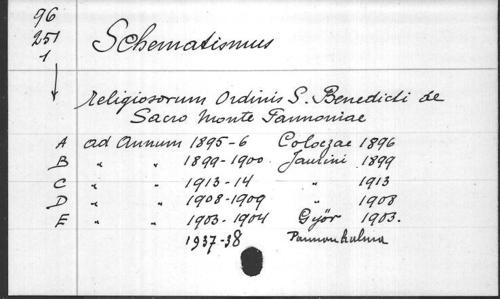 96
251
1
Schematismus
religiosorum Ordinis S. Benedicti de
Sacro Monte Pannoniae
A ad Annum 1895-6 Coloczae 1896
B " " 1899-1900 Jaurini 1899
C " " 1913-14 " 1913
D " " 1908-1909 " 1908
E " " 1903-1904 Győr 1903.
1937-38 Pannonhalma